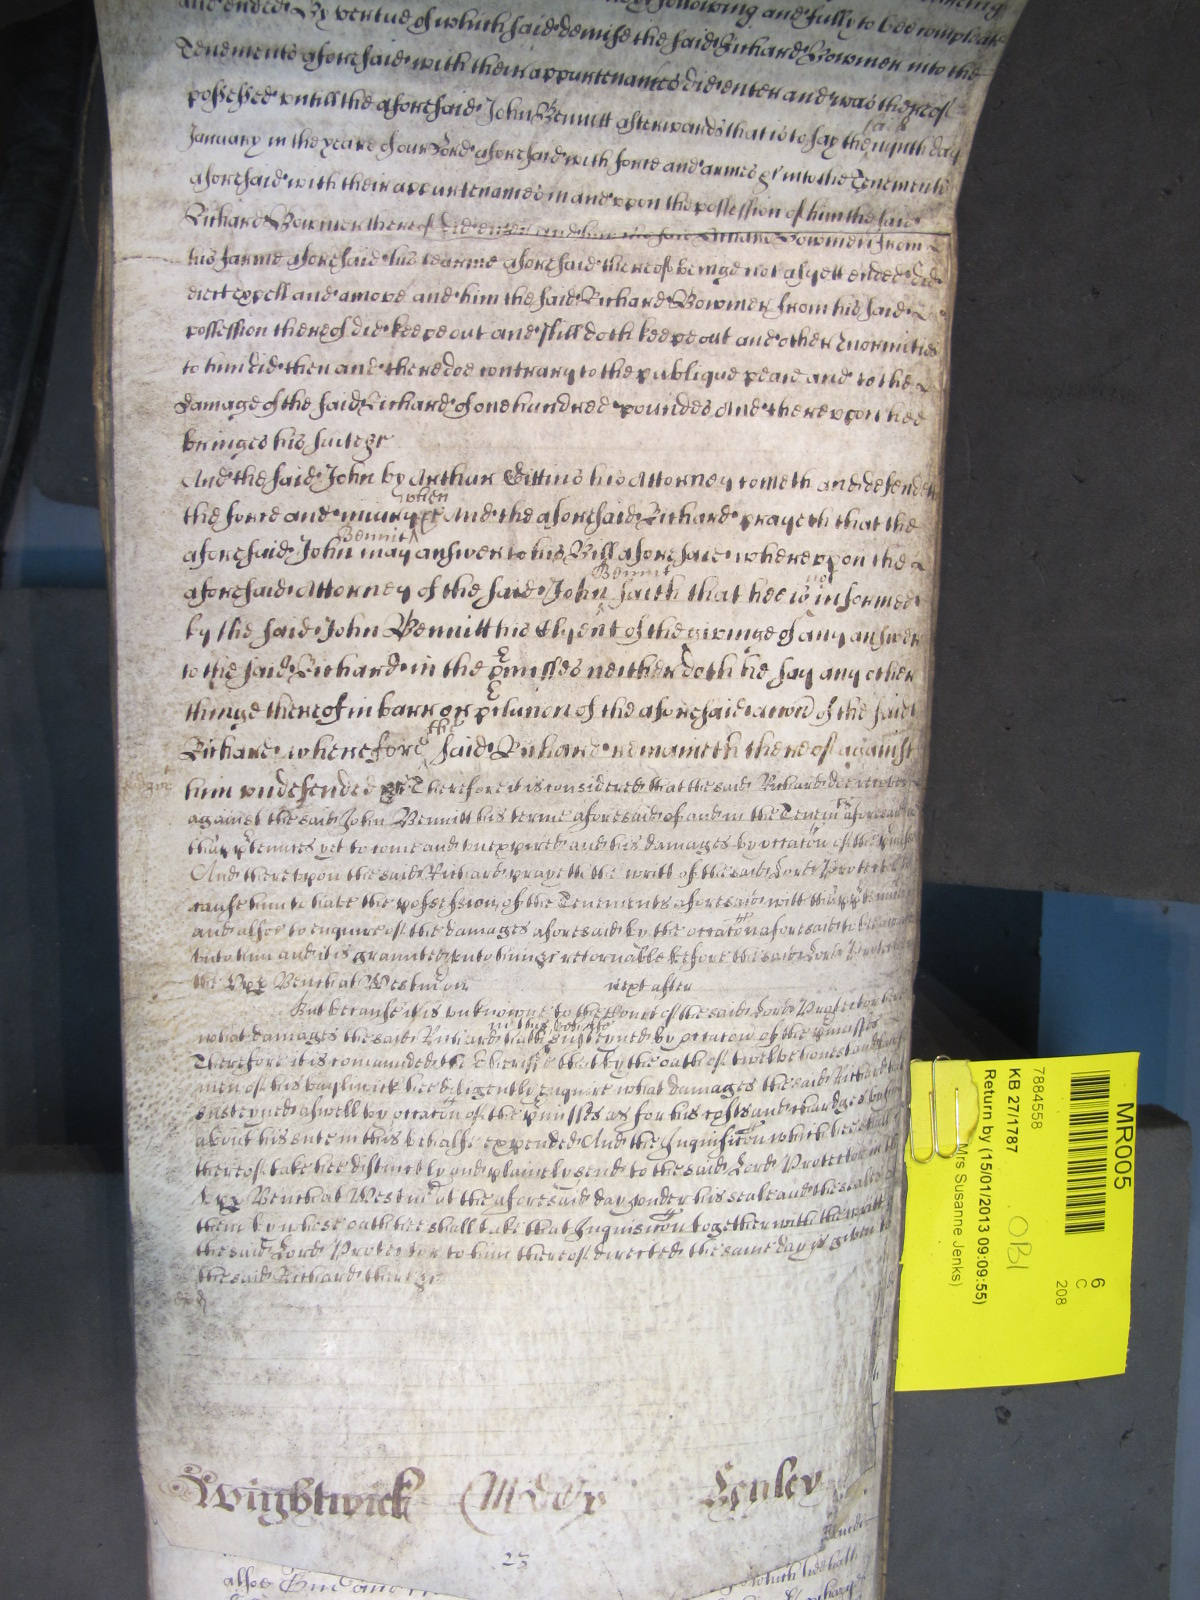 and ended By vertue of which said demise the said Richard Bowmer into the
Tenements aforesaid with their appurtenances did enter and was thereof
possessed untill the aforesaid John Bennitt afterwards that is to say the said nynth day
January in the yeare of our Lord aforesaid with force and armes &c into the Tenements
aforesaid with their appurtenances in and upon the possession of him the said
Richard Bowmer thereof did enter and him the said Richard Bowmer from
his farme aforesaid his tearme aforesaid thereof beinge not as yett ended did
eiect expell and amove and him the said Richard Bowmer from his said
possession thereof did keepe out and still doth keepe out and other Enormities
to him did then and there doe contrary to the publique peace and to the
damage of the said Richard of one hundred poundes And thereupon hee
bringes his suite &c
And the said John by Arthur Gittins his Attorney cometh and defendeth
the force and iniury when &c And the aforesaid Richard prayeth that the
aforesaid John Bennit may answer to his Bill aforesaid whereupon the
aforesaid Attorney of the said John Bennit saith that hee is not informed
by the said John Bennitt his Clyent of the givinge of any answer
to the said Richard in the pmisses neither doth he say any other
thinge thereof in barr or pclusion of the aforesaid accon of the said
Richard wherefore the said Richard remaineth thereof against
him undefended &c Therefore it is considered that the said Richard doe recover
against the said John Bennitt his terme aforesaid of and in the Tenemts aforesaid
thapptennces yet to come and unexpired and his damages by occacon of the pmisses
And thereupon the said Richard prayeth the writt of the said Lord Protector to
cause him to have the possession of the Tenements aforesaid with
and alsoe to enquire of the damages aforesaid by the occacon aforesaid to bee
unto him and it is graunted unto him &c retornable before the said Lord Protector
the Upp Bench at Westm on next after
But because it is unknowne to the Court of the said Lord Protector here
what damages the said Richard hath in this behalfe susteyned by occacon of the pmisses
Therefore it is comaunded the Sheriffe that by the oath of twelve honest and
men of his baylywick hee diligently enquire what damages the said Richard
susteyned aswell by occacon of the pmisses as for his costs and chardges by him
about his suite in this behalfe expended And the Inquisicon which hee shall
thereof take hee distinctly and plainely send to the said Lord Protector in the
Upp Bench at Westm at the aforesaid day under his seale and the seales of
them by whose oath hee shall take that Inquisicon together with the writt of
the said Lord Protector to him thereof directed the same day is given to
the said Richard there &c
Wightwick
Henley
23
alsoe
which hee hath
MR005
6
C
208
7884558
KB 27/1787
OBI
Return by (15/01/2013 09:09:55)
Mrs Susanne Jenks)